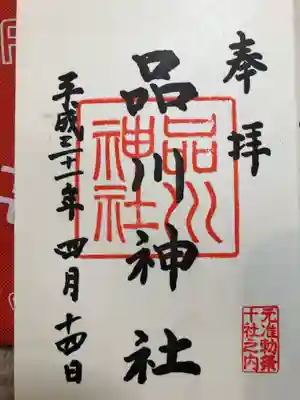 奉拝
品川神社
平成三十一年 四月 十四日
品川
神社
元准勅祭
十社之内